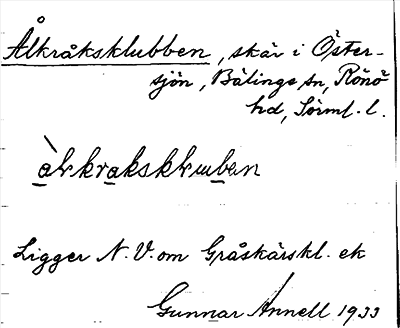 Ålkråksklubben, skär i Öster-
sjön, Bälinge sn, Rönö
hd, Sörml. l.
Ligger N.V. om Gråskärskl. ek
Gunnar Annell 1933